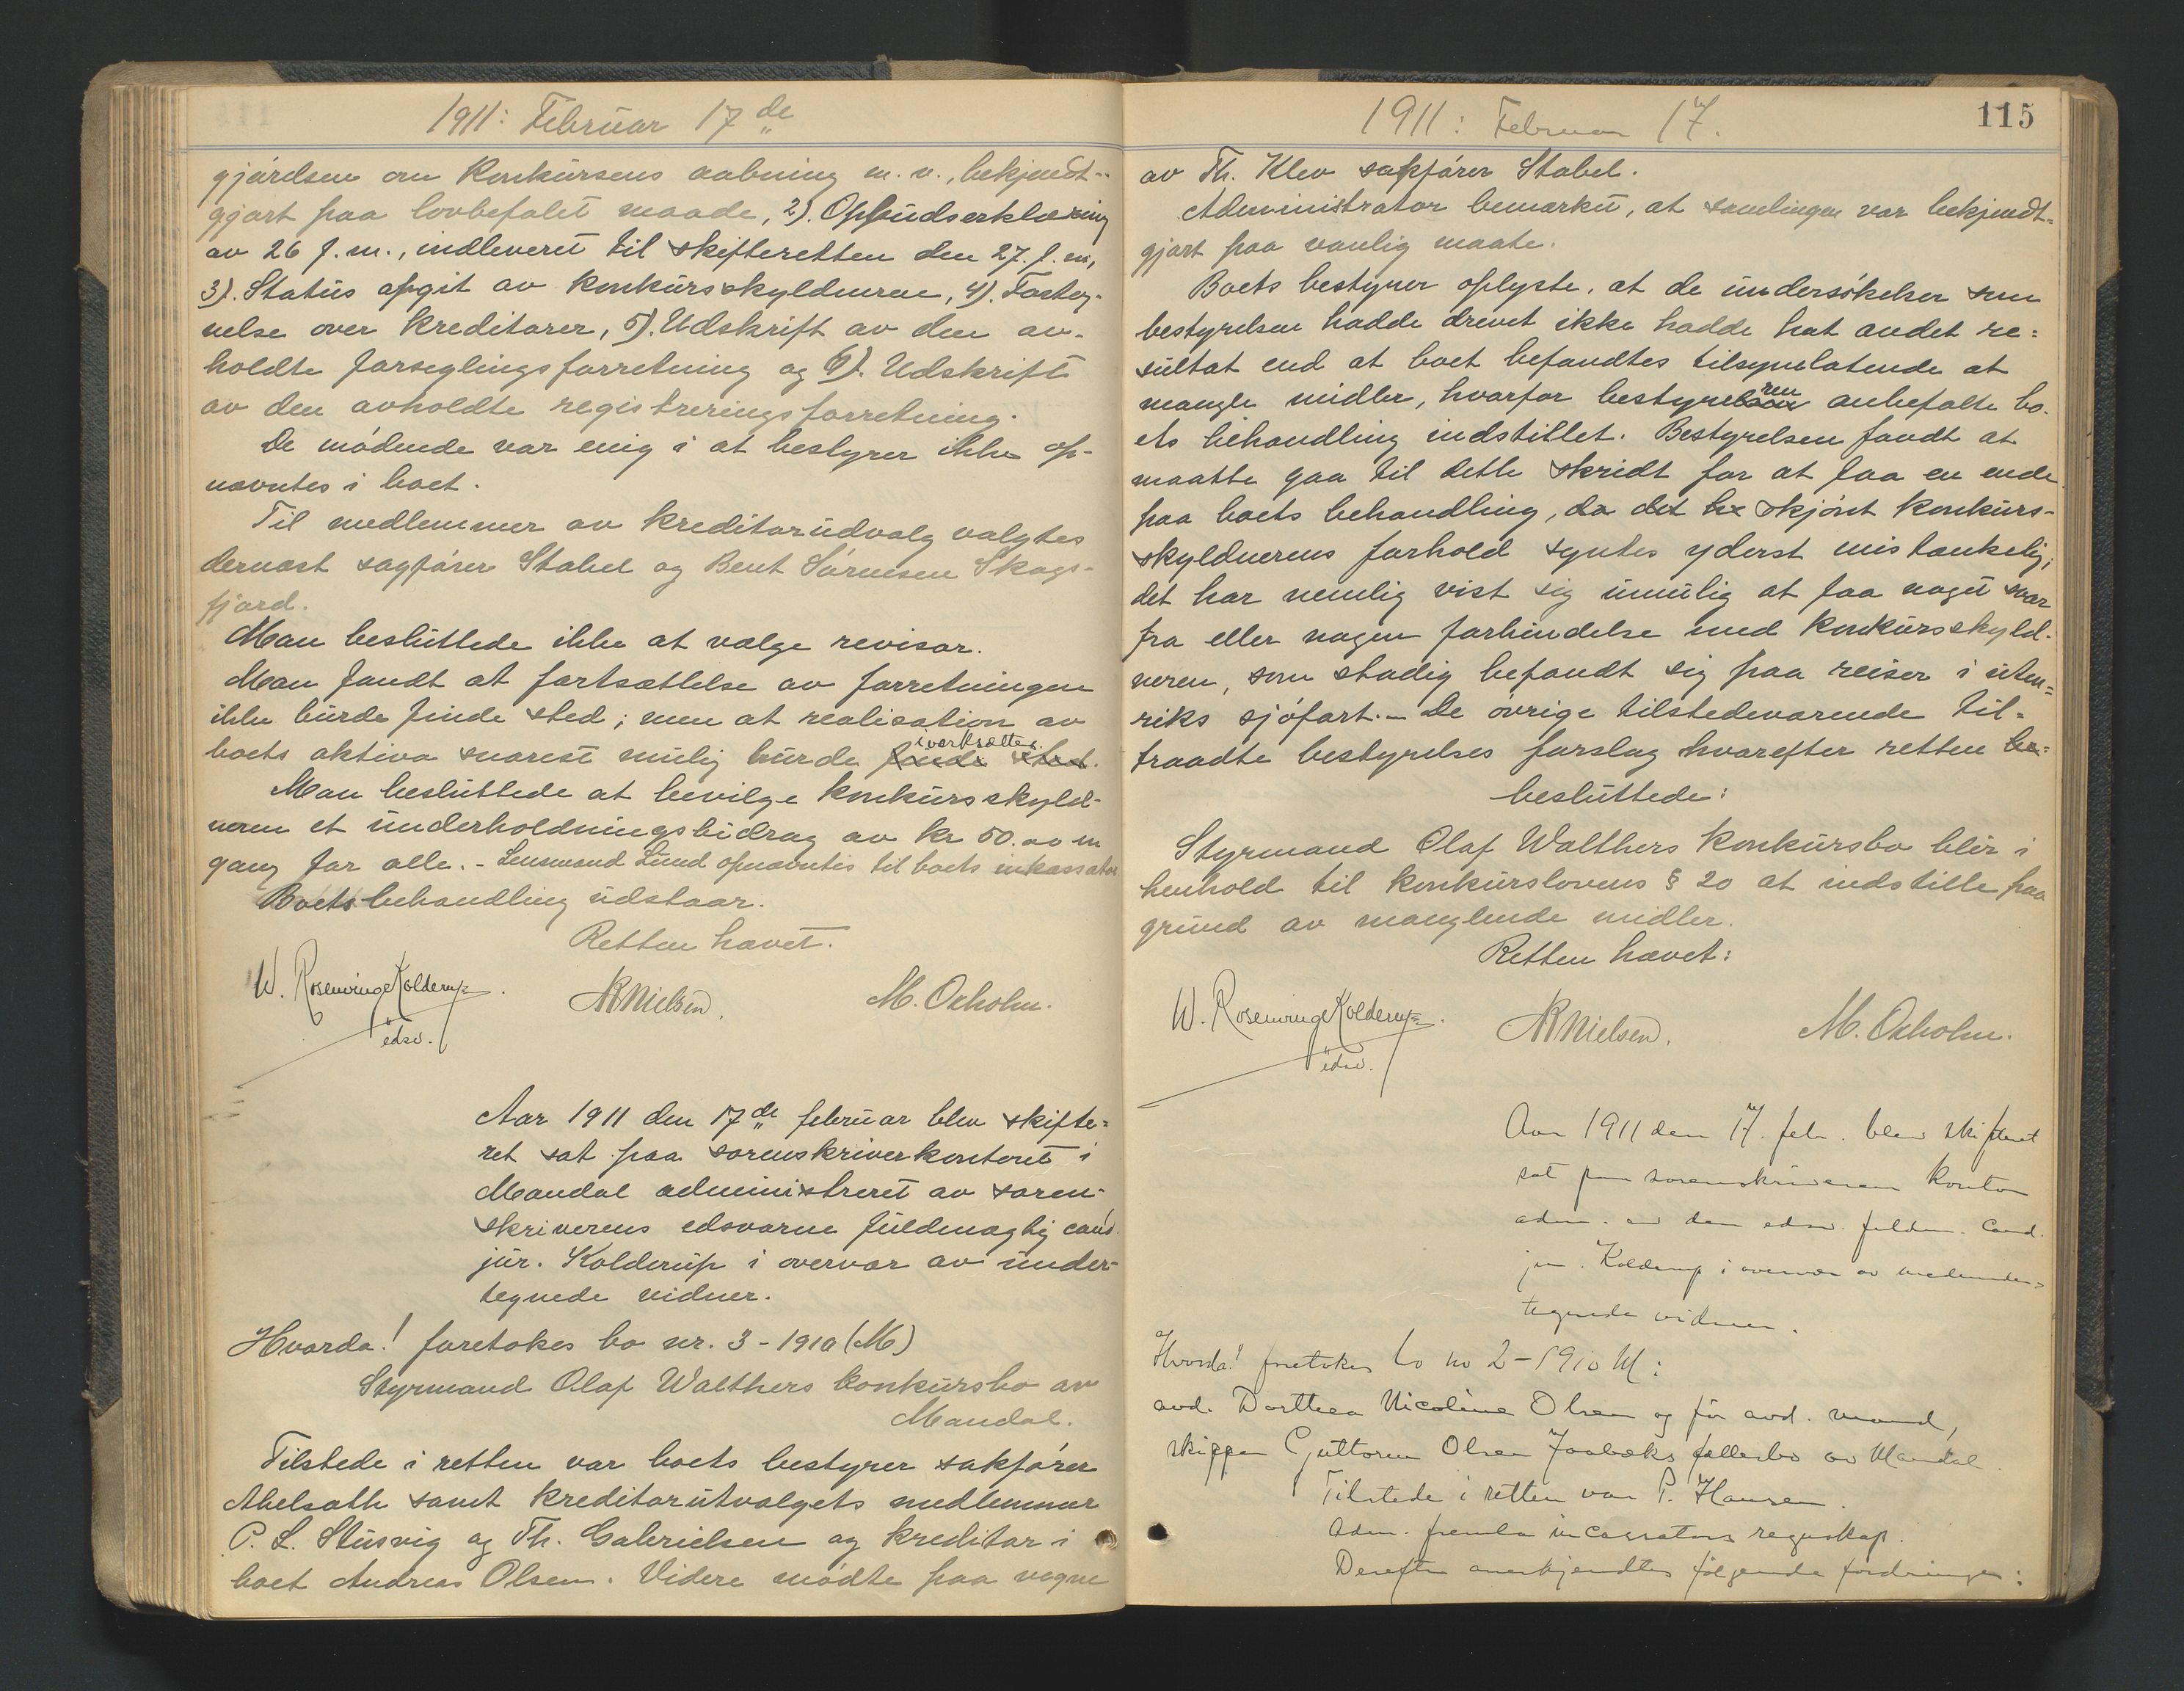 1911: Februar 17de
gjørelsen om konkursens aabning m. v., bekjendt-
gjort paa lovbefalet maade, 2). Opbudserklæring
av 26 f. m., indleveret til skifteretten den 27. f. m,
3). Status opgit av konkursskyldneren, 4). Forteg-
nelse over kreditorer, 5). Udskrift av den av-
holdte forseglingsforretning og 6). Udskrift
av den avholdte registreringsforretning.
De mødende var enig i at bestyrer ikke op-
nævntes i boet.
Til medlemmer av kreditorudvalg valgtes
dernæst sagfører Stabel og Bent Sørensen Skogs-
fjord.
Man besluttede ikke at vælge revisor.
Man fandt at fortsættelse av forretningen
ikke burde finde sted; men at realisation av
boets aktiva snarest mulig burde finde sted. iverksættes.
Man besluttede at bevilge konkursskyld-
neren et underholdningsbidrag av kr 50.00 en
gang for alle. - Lensmand Lund opnævntes til boets inkassator
Boets behandling udstaar.
Retten hævet.
W. Rosenvinge Kolderup. NRNielsen. M. Oxholm.
edsv.
Aar 1911 den 17de februar blev skifte-
ret sat paa sorenskriverkontoret i
Mandal administreret av soren-
skriverens edsvorne fuldmægtig cand.
jur. Kolderup i overvær av under-
tegnede vidner.
Hvorda! foretokes bo nr. 3 - 1910 (M)
Styrmand Olaf Walthers konkursbo av
Mandal.
Tilstede i retten var boets bestyrer sakfører
Abelsæth samt kreditorutvalgets medlemmer
P. L. Stusvig og Th. Gabrielsen og kreditor i
boet Andreas Olsen. Videre mødte paa vegne
1911: Februar 17. 115
av Th. Klev sakfører Stabel.
Administrator bemærket, at samlingen var bekjendt-
gjort paa vanlig maate.
Boets bestyrer oplyste, at de undersøkelser som
bestyrelsen hadde drevet ikke hadde hat andet re-
sultat end at boet befandtes tilsynelatende at
mangle midler, hvorfor bestyrelsen ren anbefalte bo-
ets behandling indstillet. Bestyrelsen fandt at
maatte gaa til dette skridt for at faa en ende
paa boets behandling, da det be skjønt konkurs-
skyldnerens forhold syntes yderst mistænkelig;
det har nemlig vist sig umulig at faa noget svar
fra eller nogen forbindelse med konkursskyld-
neren, som stadig befandt sig paa reiser i uten-
riks sjøfart. - De øvrige tilstedeværende til-
traadte bestyrelses forslag hvorefter retten be-
besluttede:
Styrmand Olaf Walthers konkursbo blir i
henhold til konkurslovens § 20 at indstille paa
grund av manglende midler.
Retten hævet:
W. Rosenvinge Kolderup. NRNielsen. M. Oxholm.
edsv.
Aar 1911 den 17. febr. blev skifteret
sat paa sorenskriverens kontor
adm. av den edsv. fuldm. cand.
jur. Kolderup i overvær av medunder-
tegnede vidner.
Hvorda! foretokes bo no 2 - 1910 M:
avd. Dorthea Nicoline Olsen og før avd. mand,
skipper Guttorm Olsen Jaabæks fællesbo av Mandal.
Tilstede i retten var P. Hansen.
Adm. fremla incassators regnskap.
Derefter anerkjendtes følgende fordringer: